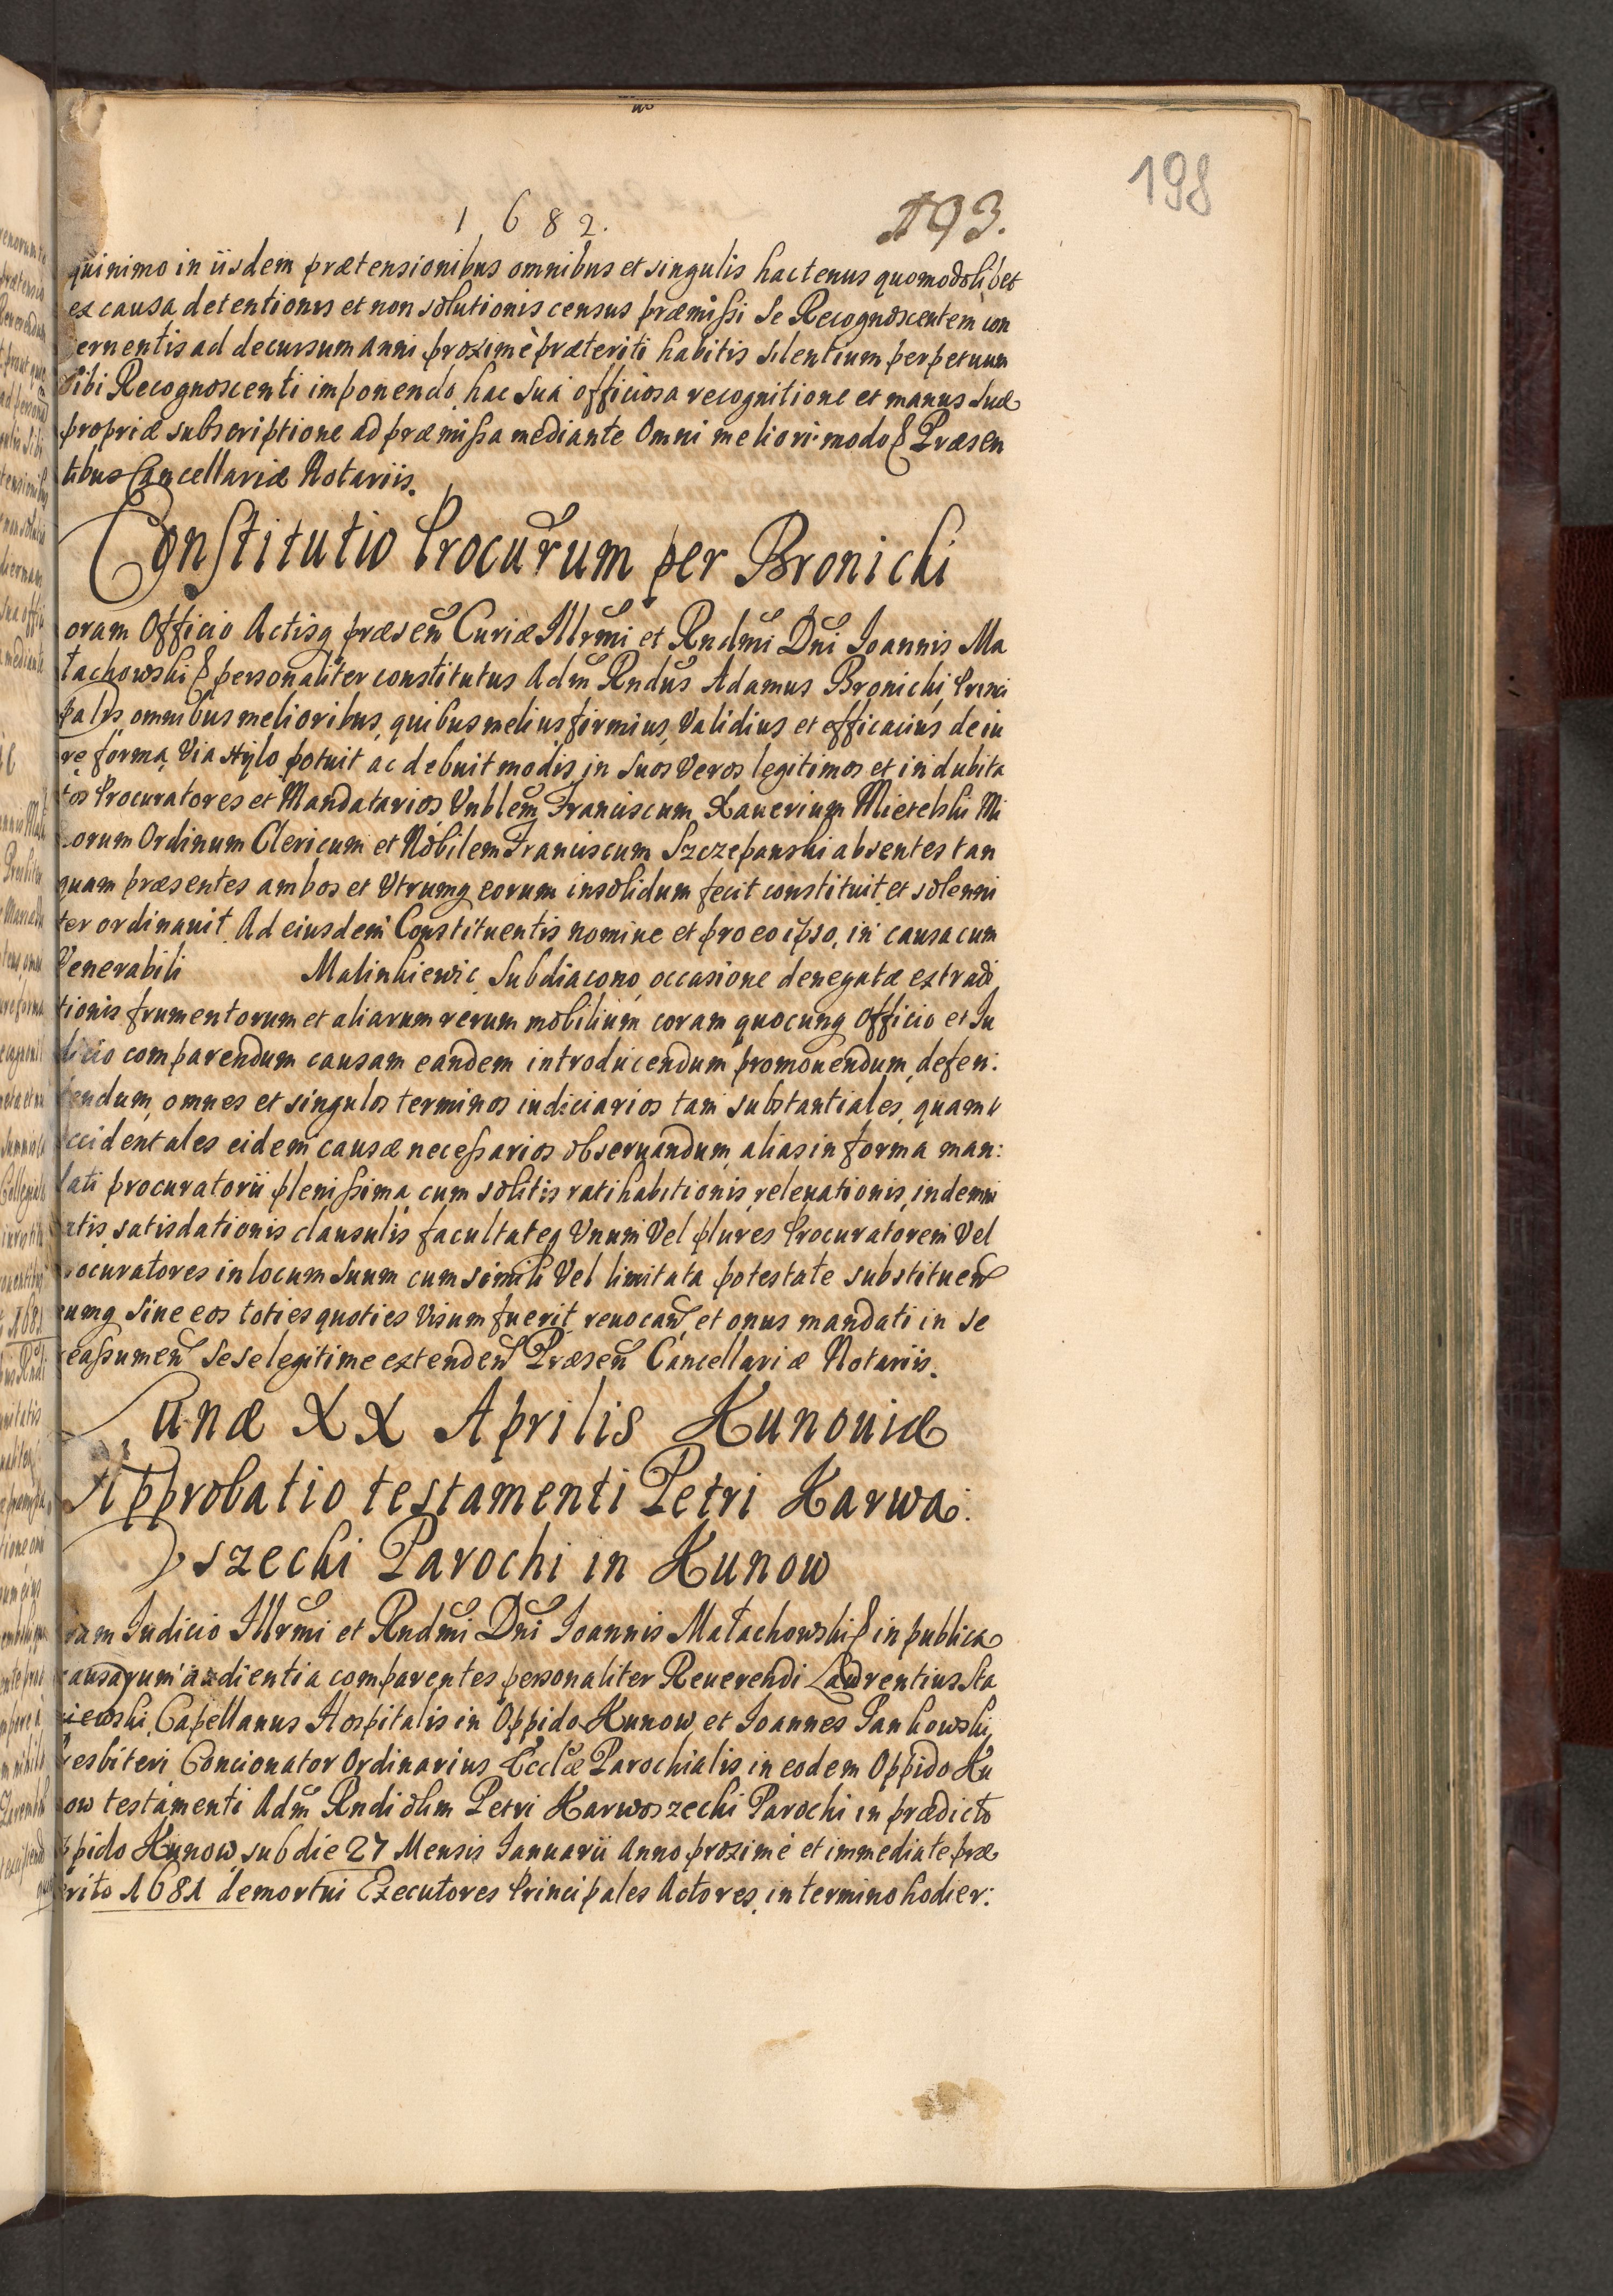 198
1682. 193.
quinimo in iisdem prætensionibus omnibus et singulis hactenus quomodolibet
ex causa detentionis et non solutionis census præmissi se Recognoscentem con
cernentis ad decursum anni proximè præteriti habitis silentium perpetuum
sibi Recognoscenti imponendo, hac sua officiosa recognitione et manus suæ
propriæ subscriptione ad præmissa mediante Omni meliori modo & Præsen
tibus Cancellariæ Notariis.
Constitutio Procurum per Bronicki
oram Officio Actisq præsen Curiæ Illrmi et Rndmi Dni Joannis Ma
łachowski & personaliter constitutus Adm Rndus Adamus Bronicki, Princi
palis, omnibus melioribus, quibus melius firmius, Validius et efficacius, de iu
re forma, Via stylo potuit ac debuit modis, in suos Veros legitimos et indubita
tos Procuratores et Mandatarios, Vnblem Franciscum Xauerium Mietelski Mi
norum Ordinum Clericum et Nobilem Franciscum Szczepanski absentes tan
quam præsentes ambos et Vtrumq eorum insolidum fecit constituit et solenni
ter ordinauit. Ad eiusdem Constituentis nomine et pro eo ipso, in causa cum
Venerabili Malinkiewic Subdiacono, occasione denegatæ extradi
tionis frumentorum et aliarum rerum mobilium coram quocunq Officio et Iu
dicio comparendum causam eandem introducendum promouendum, defen:
dendum, omnes et singulos terminos iudiciarios tam substantiales, quam
accidentales eidem causæ necessarios obseruandum, alias in forma man:
dati procuratorii plenissima, cum solitis ratihabitionis, releuationis, indemni
tatis, satisdationis clausulis facultateq Vnum Vel plures Procuratorem Vel
Procuratores in locum suum cum simili Vel limitata potestate substituen
eumq siue eos toties quoties Visum fuerit reuocan, et onus mandati in se
reassumen sese legitime extenden Præsen Cancellariæ Notariis.
Lunæ XX Aprilis Kunouiæ
Approbatio testamenti Petri Karwa:
szecki Parochi in Kunow
oram Iudicio Illrmi et Rndmi Dni Joannis Małachowski & in publica
causarum audientia comparentes personaliter Reuerendi Laurentius Sta
niewski, Capellanus Hospitalis in Oppido Kunow, et Joannes Jankowski,
Presbiteri Concionator Ordinarius Ecclæ Parochialis in eodem Oppido Ku
now testamenti Adm Rndi olim Petri Karwoszecki Parochi in prædicto
Oppido Kunow, sub die 27 Mensis Januarii Anno proximè et immediate præ
terito 1681 demortui Executores Principales Actores, in termino hodier: